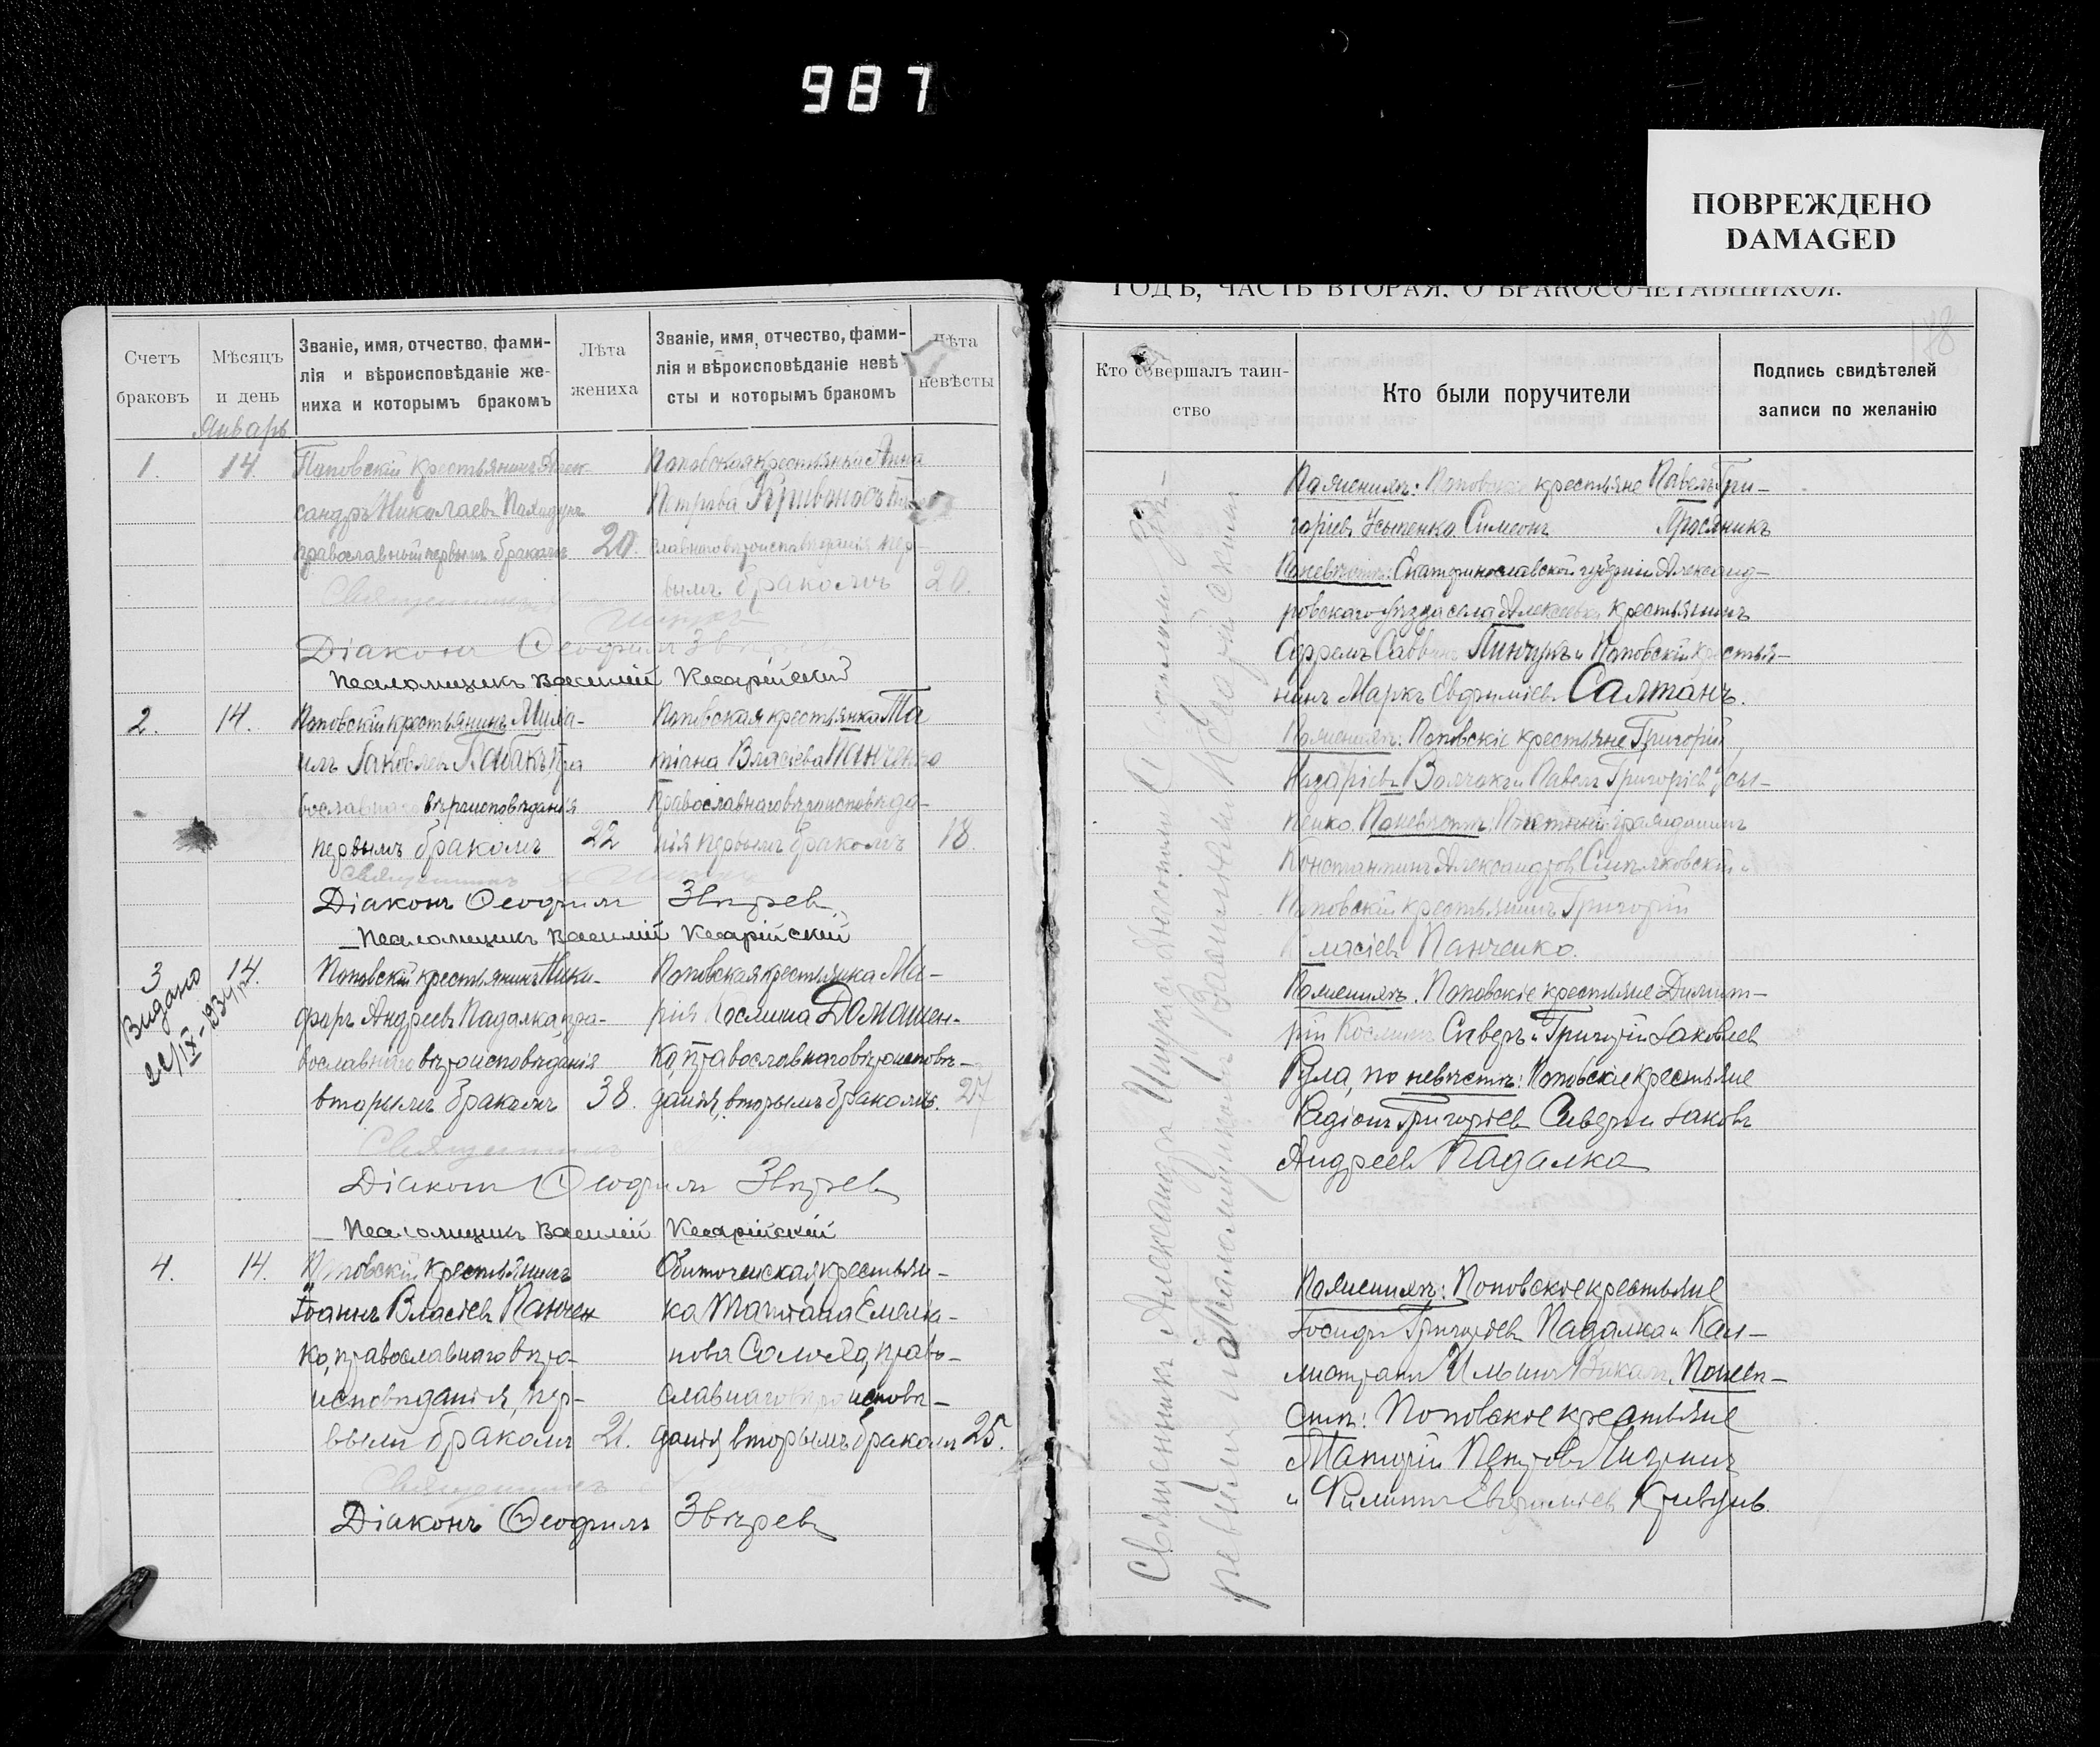 987
ПОВРЕЖДЕНО
DAMAGED
Счетъ браковъ
Мѣсяцъ и день
Званіе, имя, отчество, фами-
лія и вѣроисповѣданіе же-
ниха и которымъ бракомъ
Лѣта жениха
Званіе, имя, отчество, фами-
лія и вѣроисповѣданіе невѣ-
сты и которымъ бракомъ
Лѣта невѣсты
Январь
1.
14.
Поповскій крестьянинъ Алек-
сандръ Николаевъ
православный первымъ бракомъ
20.
Поповская крестьянка Анна
Петрова Кривоносъ
славнаго вѣроисповѣданія пер-
вымъ бракомъ
20.
Священникъ
Діаконъ Ѳеофилъ Звѣревъ
Псаломщикъ Василій Кесарійскій
2.
14.
Поповскій крестьянинъ Миха-
илъ Іаковлевъ Пра
вославнаго вѣроисповѣданія
первымъ бракомъ
22
Поповская крестьянка Та
тіана Власіева Панченко
православнаго вѣроисповѣда-
нія первымъ бракомъ
18.
Священникъ
Діаконъ Ѳеофилъ Звѣревъ
Псаломщикъ Василій Кесарійскій
3
14.
Видано
22/IX-1934 г.
Поповскій крестьянинъ Ники-
форъ Андреевъ Падалка, пра-
вославнаго вѣроисповѣданія
вторымъ бракомъ
38.
Поповская крестьянка Ма-
рія Космина Домашен-
ко, православнаго вѣроисповѣ-
данія, вторымъ бракомъ.
27
Священникъ
Діаконъ Ѳеофилъ Звѣревъ
Псаломщикъ Василій Кесарійскій
4.
14.
Поповскій крестьянинъ
Іоаннъ Власіевъ Панчен
ко, православнаго вѣро-
исповѣданія, пер-
вымъ бракомъ
21.
Обиточенская крестьян-
ка Татіана Емелія-
нова Солояд, право-
славнаго вѣроисповѣ-
данія, вторымъ бракомъ
25.
Священникъ
Діаконъ Ѳеофилъ Звѣревъ
ГОДЪ, ЧАСТЬ ВТОРАЯ, О БРАКОСОЧЕТАВШИХСЯ.
178
Кто совершалъ таин-
ство
Кто были поручители
Подпись свидѣтелей
записи по желанію
Священникъ Александръ съ діакономъ Ѳеофиломъ Звѣ-
ревымъ и псаломщикомъ Василіемъ Кесарійскимъ
По женихѣ: Поповскіе крестьяне Павелъ Гри-
горіевъ Усыпенко Симеонъ Просяникъ
По невѣстѣ: Екатеринославской губерніи Александ-
ровскаго уѣзда села Алексѣевки крестьянинъ
Ефремъ Саввинъ Пинчукъ и Поповскій крестья-
нинъ Маркъ Евфиміевъ Салтанъ.
По женихѣ: Поповскіе крестьяне Григорій
Назаріевъ Волчакъ и Павелъ Григоріевъ Усы-
пенко. По невѣстѣ: Почетный гражданинъ
Константинъ Александровъ и
Поповскій крестьянинъ Григорій
Власіевъ Панченко.
По женихѣ. Поповскіе крестьяне Димит-
рій Косминъ Сиверъ и Григорій Іаковлев
Рула, по невѣстѣ: Поповскіе крестьяне
Родіонъ Григоріевъ Сиверъ и Іаковъ
Андреевъ Падалка
По женихѣ: Поповскіе крестьяне
Іосифъ Григоріевъ Падалка и Кал-
листратъ Ильинъ По невѣ-
стѣ: Поповскіе крестьяне
Матфій Петровъ
и Филиппъ Евфиміевъ Кривунь.